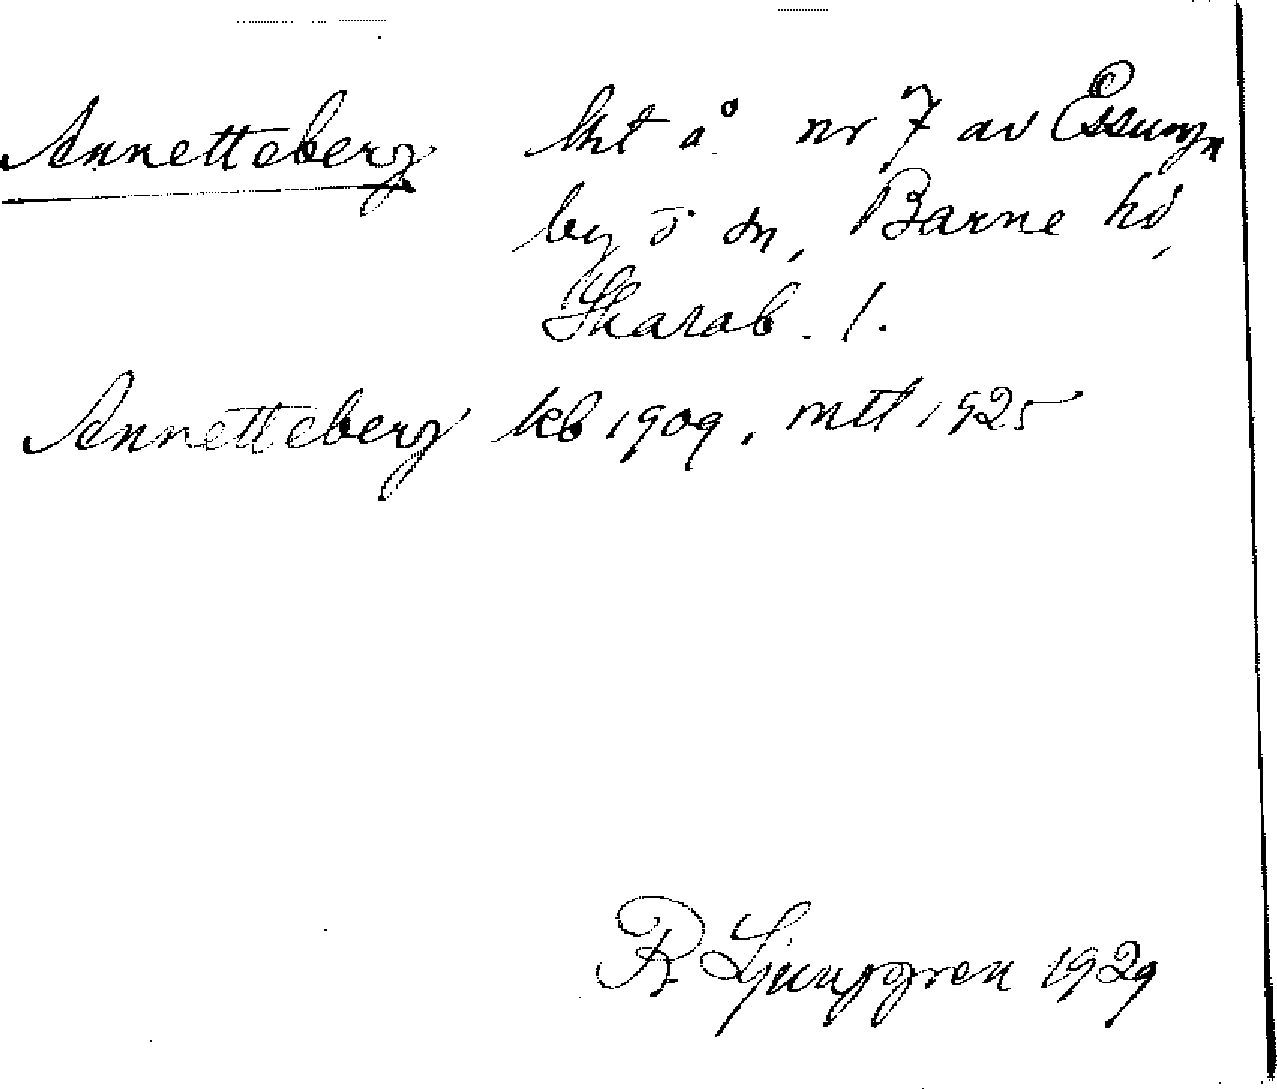 Annetteberg lht å nr 7 av Essunga
by o sn, Barne hd,
Skarab. l.
Annetteberg kb 1909, mtl 1925
R Ljunggren 1929